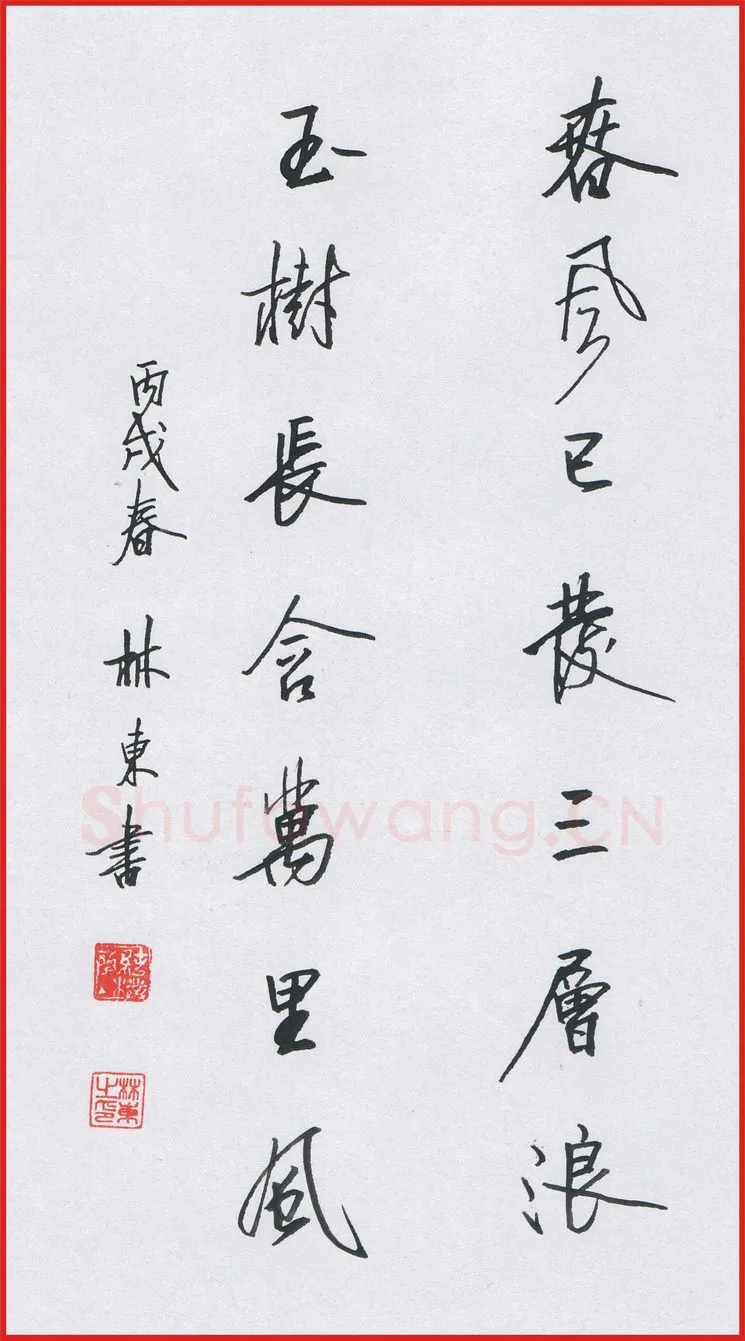 春風已發三層浪
玉樹長含萬里風
丙戌春 林東書
林東之印
Shufawang.CN